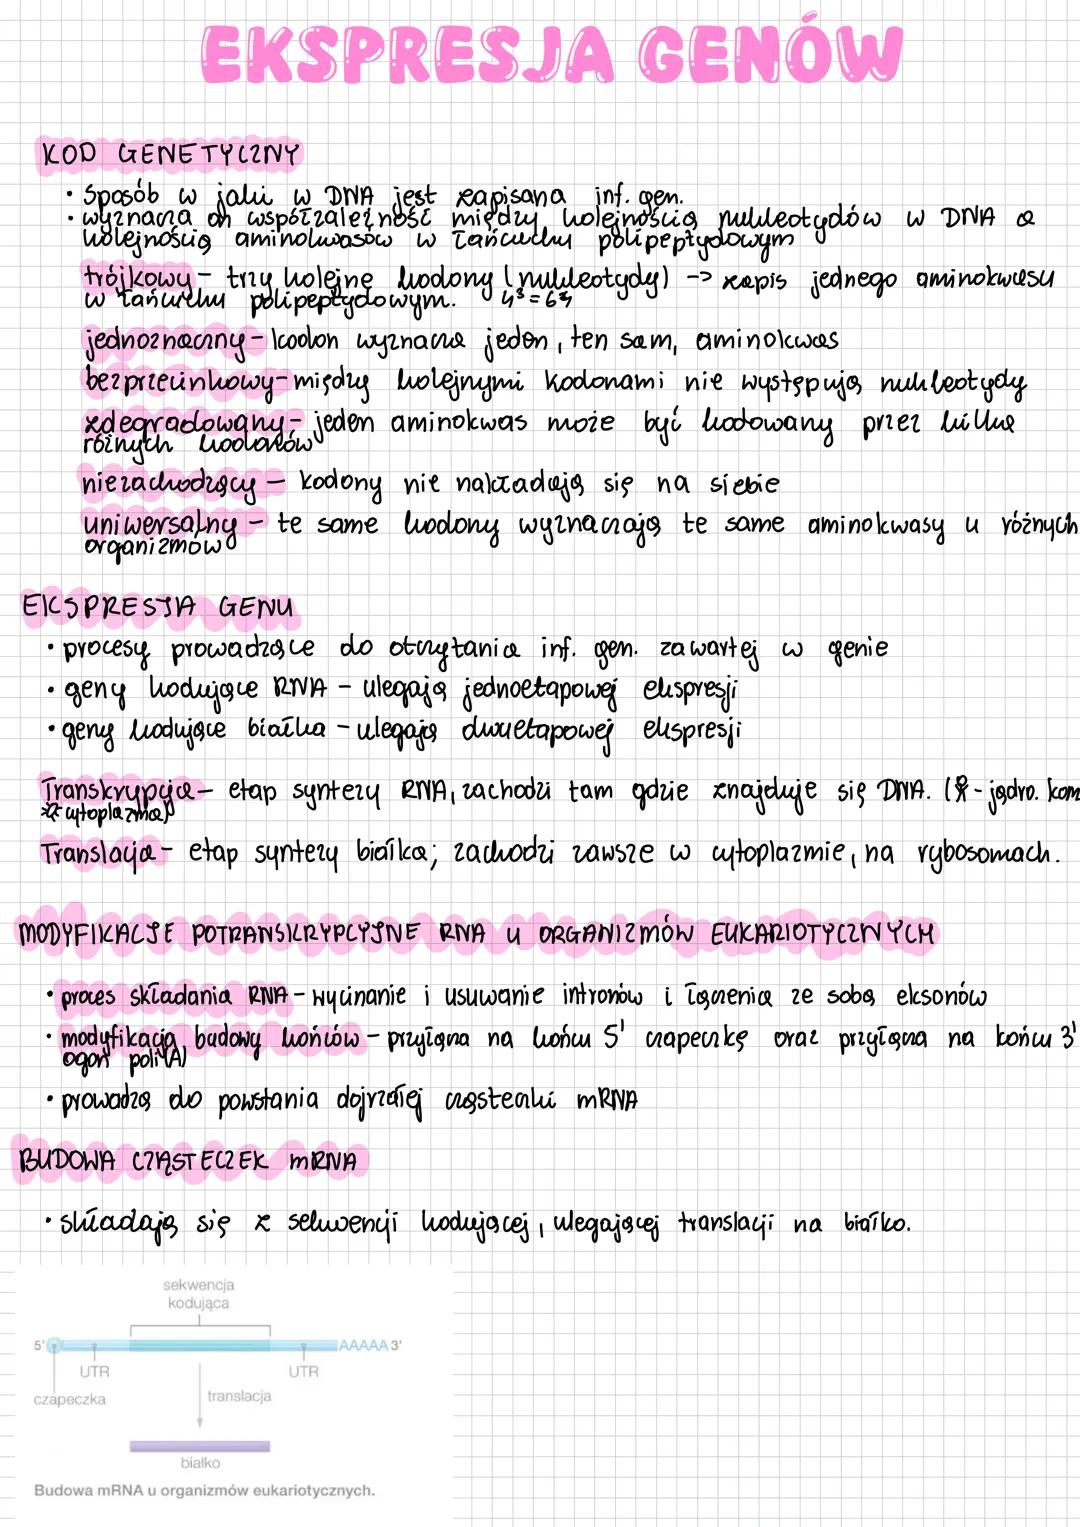 EKSPRESJA GENÓW
KOD GENETYCZNY
• Sposób w jaki w DNA jest zapisana inf. gen.
• wyznacza on współzależność między kolejnością nukleotydów w DNA a
kolejnością aminokwasów w łańcuchu polipeptydowym
trójkowy - trzy kolejne kodony (nukleotydy) -> zapis jednego aminokwasu
w łańcuchu polipeptydowym. 4³ = 64
jednoznaczny - kodon wyznacza jeden, ten sam, aminokwas
bezprzecinkowy - między kolejnymi kodonami nie występują nukleotydy
zdegradowany - jeden aminokwas może być kodowany przez kilka
różnych kodonów
niezachodzący - kodony nie nakładają się na siebie
uniwersalny - te same kodony wyznaczają te same aminokwasy u różnych
organizmów
EKSPRESJA GENU
• procesy prowadzące do otczytania inf. gen. zawartej w genie
• geny kodujące RNA - ulegają jednoetapowej ekspresji
• geny kodujące białka - ulegają dwuetapowej ekspresji
Transkrypcja - etap syntezy RNA, zachodzi tam gdzie znajduje się DNA. ( - jądro. kom
cytoplazma)
Translacja - etap syntezy białka; zachodzi zawsze w cytoplazmie, na rybosomach.
MODYFIKACJE POTRANSKRYPCYJNE RNA U ORGANIZMÓW EUKARIOTYCZNYCH
• proces składania RNA - wycinanie i usuwanie intronów i łączenia ze sobą eksonów
• modyfikacja budowy końców - przyłącza na końcu 5' czapeczkę oraz przyłącza na końcu 3'
ogon poli(A)
• prowadzą do powstania dojrzałej cząsteczki mRNA
BUDOWA CZĄSTECZEK mRNA
• składają się z sekwencji kodującej, ulegającej translacji na białko.
sekwencja
kodująca
5' AAAAA 3'
UTR UTR
czapeczka translacja
białko
Budowa mRNA u organizmów eukariotycznych.